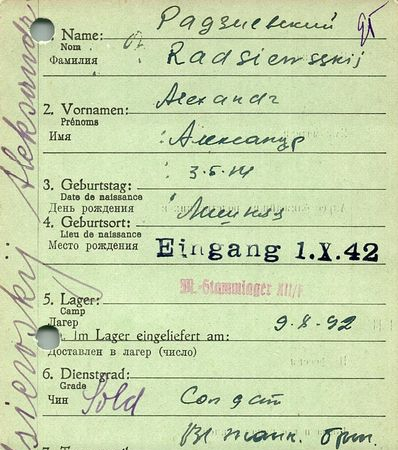 Радзиевский
1. Name: Radsiewsskij
Nom
Фамилия
2. Vornamen: Alexandr
Prénoms
Имя Александр
3. Geburtstag: 3.5.14
Date de naissance
День рождения
4. Geburtsort:
Lieu de naissance
Место рождения
Eingang 1.X.42
M.-Stammlager XII/F
5. Lager:
Camp
Лагерь
Im Lager eingeliefert am: 9.8.42
Доставлен в лагерь (число)
6. Dienstgrad:
Grade
Чин Sold Солдат
танк. бриг.